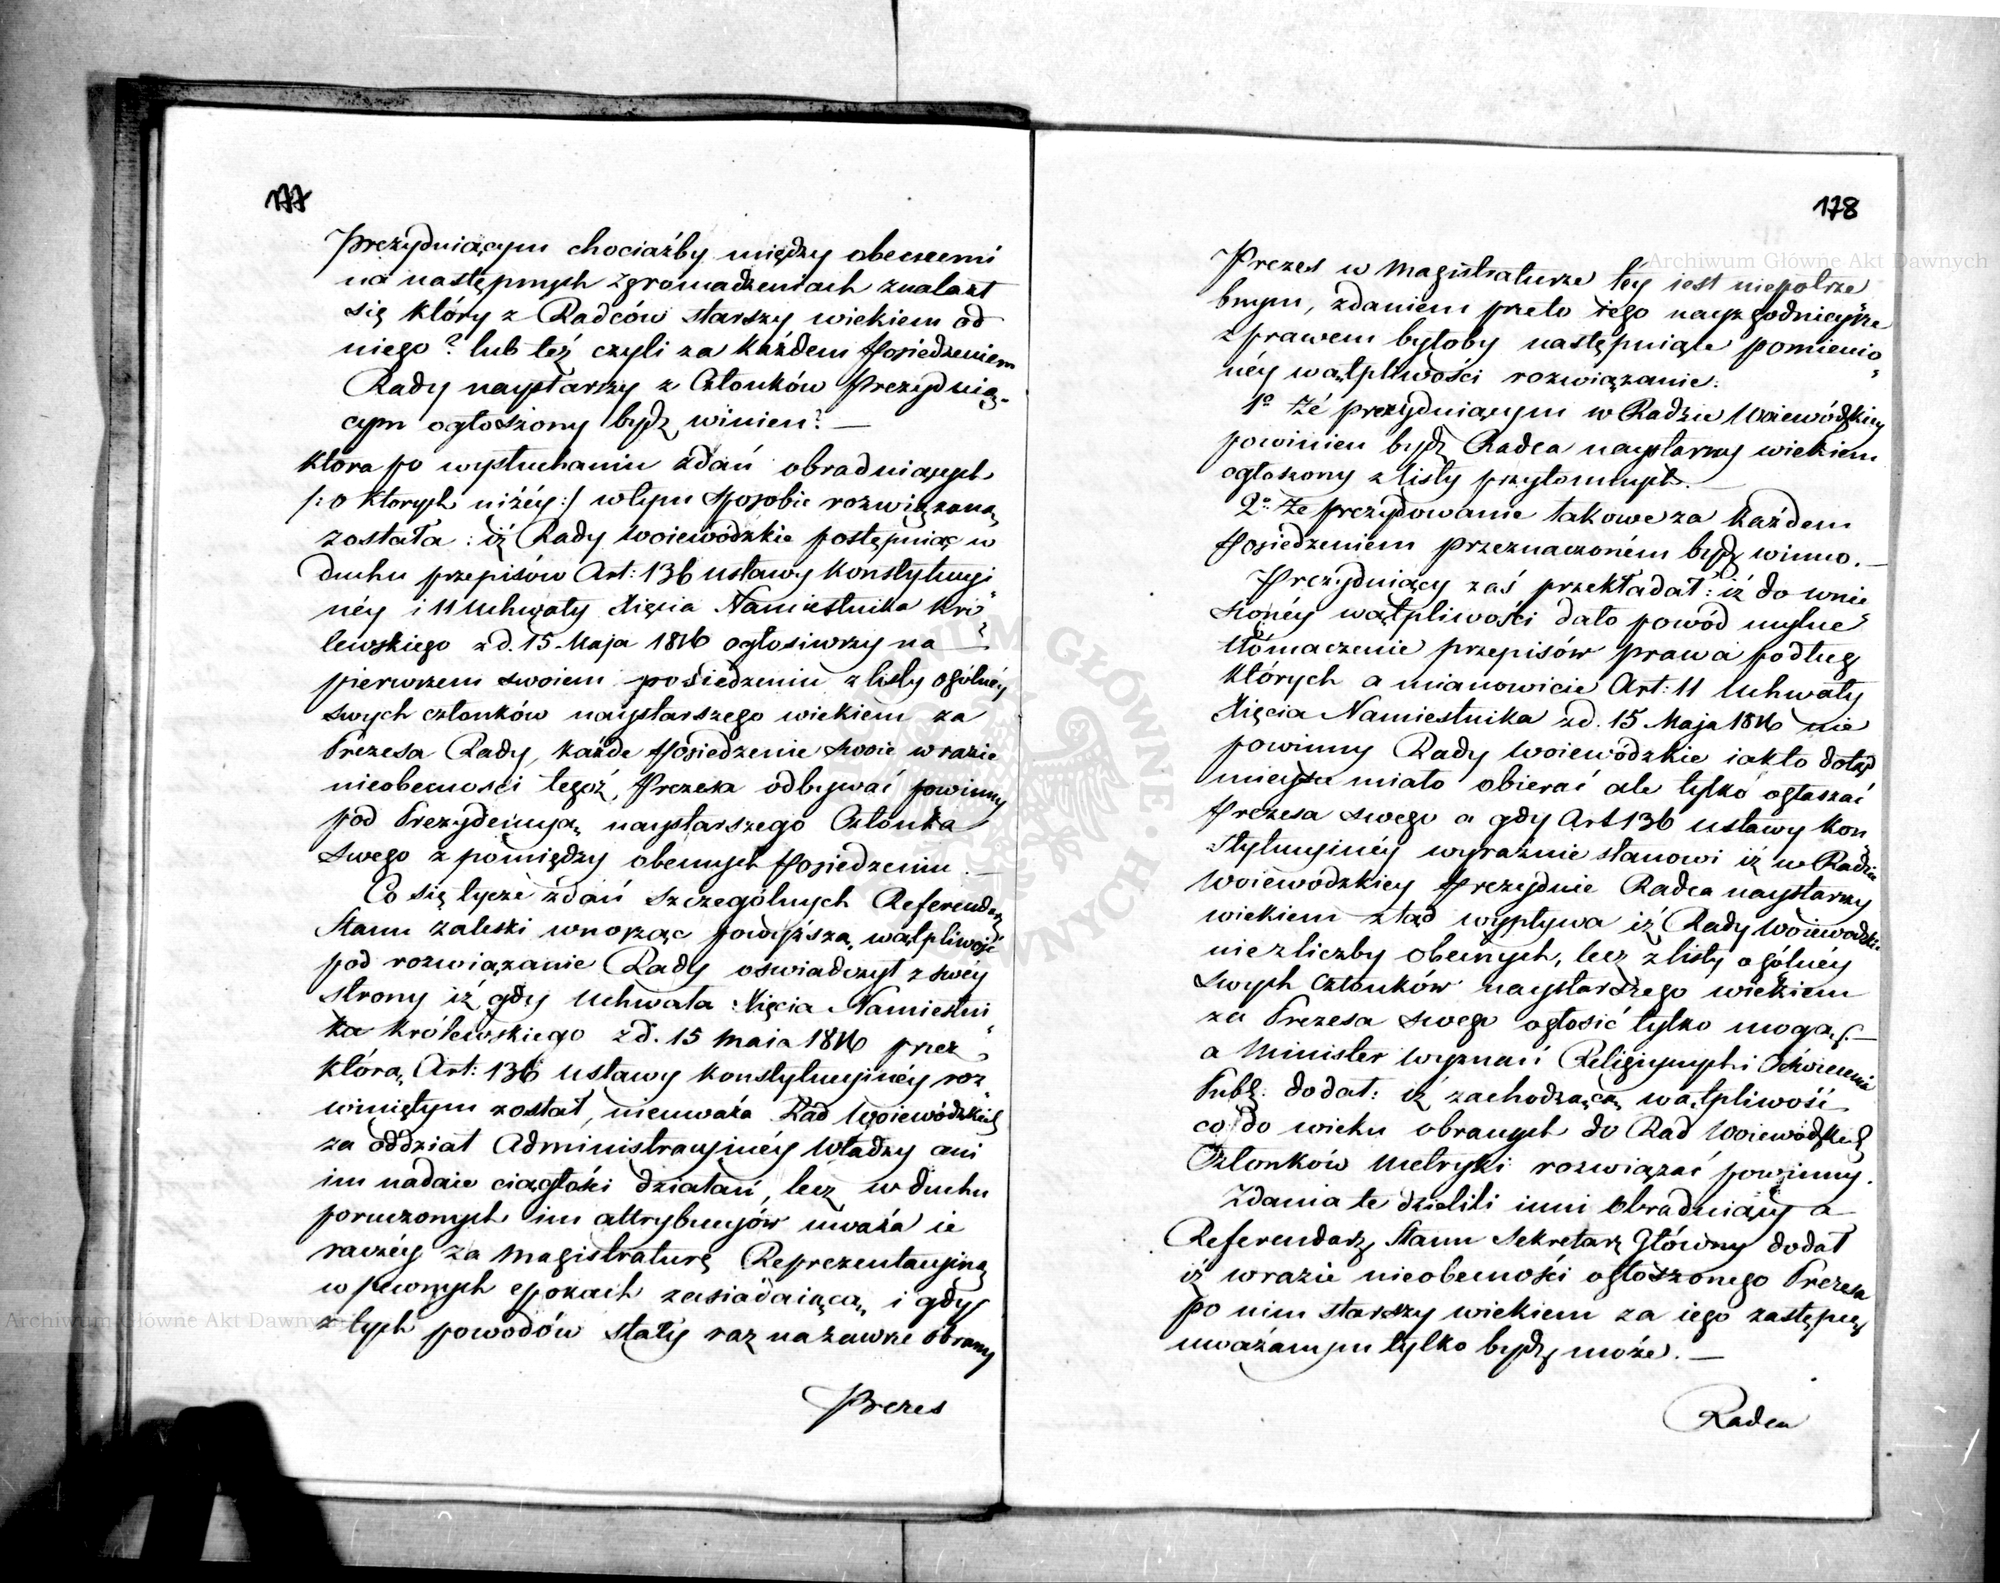 177
Prezyduiącym chociażby między obecnemi
na następnych zgromadzeniach znalazł
się który z Radców starszy wiekiem od
niego? lub też czyli za każdem Posiedzeniem
Rady naystarszy z Członków Prezyduią-
cym ogłoszony bydź winien? —
która po wysłuchaniu zdań obraduiących
/: o których niżéy :/ w tym sposobie rozwiązaną
została : iż Rady Woiewódzkie postępuiąc w
duchu przepisów Art: 136 ustawy Konstytucyi
néy i 11 Uchwały Xięcia Namiestnika Kró
lewskiego z d. 15 Maja 1816 ogłosiwszy na
pierwszem swoiem posiedzeniu z listy ogólnéy
swych członków naystarszego wiekiem za
Prezesa Rady, każde Posiedzenie swoie w razie
nieobecności tegoż Prezesa odbywać powinny
pod Prezydencyą naystarszego Członka
swego z pomiędzy obecnych Posiedzeniu. —
Co się tycze zdań szczególnych Referendarz
Stanu Zaleski wnosząc powyższą wątpliwość
pod rozwiązanie Rady oswiadczył z swéy
strony iż gdy Uchwała Xięcia Namiestni
ka Królewskiego z d. 15 Maia 1816 przez
którą Art: 136 ustawy Konstytucyinéy roz
winiętym został, nieuważa Rad Woiewódzkich
za oddział Administracyinéy Władzy ani
im nadaie ciągłości działań, lecz w duchu
poruczonych im attrybucyów uważa ie
raczéy za Magistraturę Reprezentacyiną
w pewnych epokach zasiadaiącą i gdy
z tych powodów stały raz na zawsze obrany
Prezes
178
Prezes w Magistraturze téy iest niepotrze
bnym, zdaniem przeto iego nayzgodnieysze
z prawem byłoby następuiące pomienio
néy wątpliwości rozwiązanie:
1º Że prezyduiącym w Radzie Woiewódzkiey
powinien bydź Radca naystarszy wiekiem
ogłoszony z listy przytomnych. —
2º Że prezydowanie takowe za każdem
Posiedzeniem przeznaczoném bydź winno. —
Prezyduiący zaś przekładał : iż do wnie
sionéy wątpliwości dało powód mylne
tłómaczenie przepisów prawa podług
których a mianowicie Art: 11 Uchwały
Xięcia Namiestnika z d. 15 Maja 1816 nie
powinny Rady Woiewódzkie iak to dotąd
mieysce miało obierać ale tylko ogłaszać
Prezesa swego a gdy Art 136 ustawy Kon
stytucyinéy wyraźnie stanowi iż w Radzie
Woiewódzkiey Prezyduie Radca naystarszy
wiekiem ztąd wypływa iż Rady Woiewodzkie
nie z liczby obecnych, lecz z listy ogólney
swych Członków naystarszego wiekiem
za Prezesa swego ogłosić tylko mogą. —
a Minister Wyznań Religiynych i Oświecenia
Publ: dodał : iż zachodzącą wątpliwość
co do wieku obranych do Rad Woiewódzkich
Członków Metryki rozwiązać powinny.
Zdania te dzielili inni Obraduiący a
Referendarz Stanu Sekretarz Główny dodał
iż w razie nieobecności ogłoszonego Prezesa
po nim starszy wiekiem za iego zastępcę
uważanym tylko bydź może. —
Radca
Archiwum Główne Akt Dawnych
Archiwum Główne Akt Dawnych